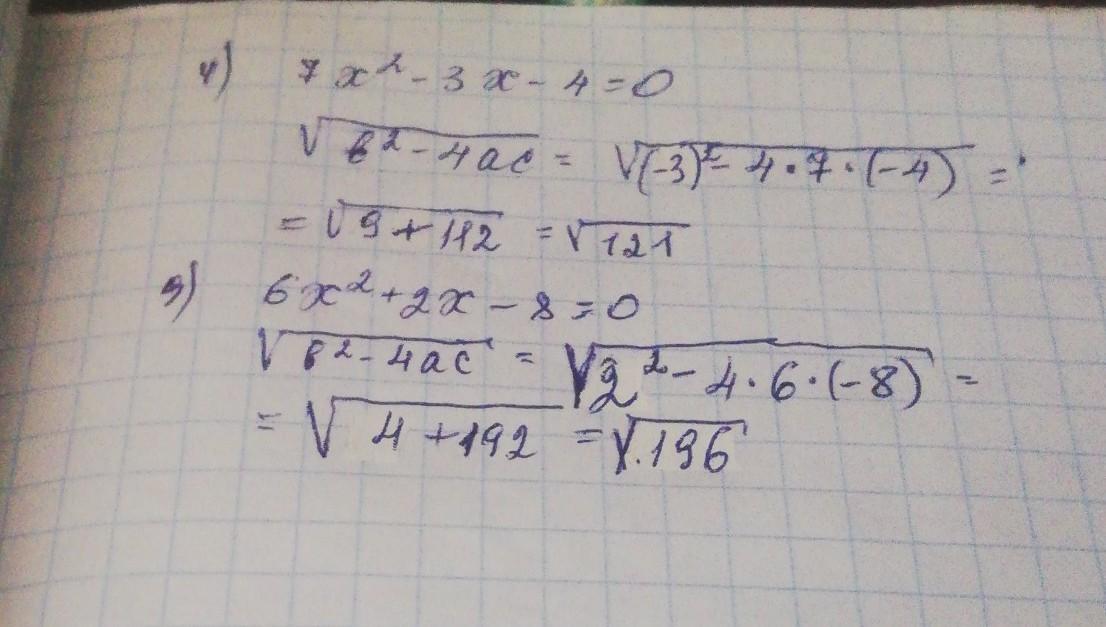 4) 7x² - 3x - 4 = 0
√(в² - 4ac) = √((-3)² - 4·7·(-4)) =
= √(9 + 112) = √121
5) 6x² + 2x - 8 = 0
√(в² - 4ac) = √(2² - 4·6·(-8)) =
= √(4 + 192) = √196